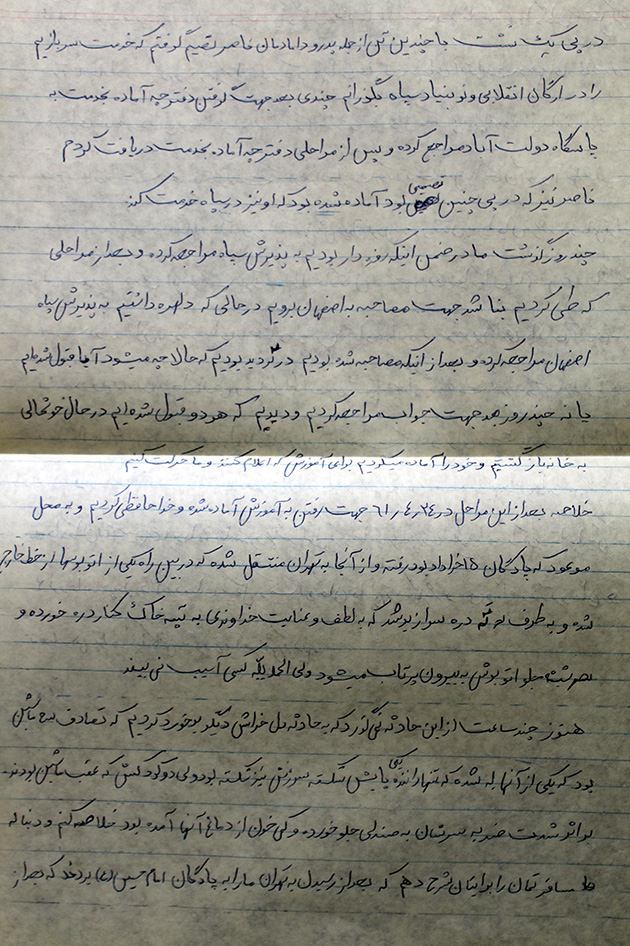 در پی یک نشست با چندین تن از جمله پدر و دامادمان ناصر تصمیم گرفتم که خدمت سربازیم
را در ارگان انقلابی و نوبنیاد سپاه بگذرانم چندی بعد جهت گرفتن دفترچه آماده بخدمت به
پاسگاه دولت آباد مراجع کرده و پس از مراحلی دفترچه آماده بخدمت دریافت کردم
ناصر نیز که در پی چنین تصمیمی بود آماده شده بود که او نیز در سپاه خدمت کند.
چند روز گذشت ما در ضمن اینکه روزه دار بودیم به پذیرش سپاه مراجعه کرده و بعد از مراحلی
که طی کردیم بنا شد جهت مصاحبه به اصفهان برویم در حالی که دلهره داشتیم به پذیرش سپاه
اصفهان مراجعه کرده و بعد از اینکه مصاحبه شده بودیم در تردید بودیم که حالا چه میشود آیا قبول شده‌ایم
یا نه چند روز بعد جهت جواب مراجعه کردیم و دیدیم که هر دو قبول شده‌ایم در حال خوشحالی
به خانه باز گشتیم و خود را آماده میکردیم برای آموزش که اعلام کنند و ما حرکت کنیم
خلاصه بعد از این مراحل در ۲۴ر۴ر۶۱ جهت رفتن به آموزش آماده شده و خداحافظی کردیم و به محل
موعود که پادگان ۱۵ خرداد بود رفته و از آنجا به تهران منتقل شده که در بین راه یکی از اتوبوسها از خط خارج
شده و به طرف دره سرازیر شد که به لطف و عنایت خداوندی به تپه خاک کنار دره خورده و
جلو اتوبوس به بیرون پرتاب میشود ولی الحمدلله کسی آسیب نمی بیند
هنوز چند ساعت از این حادثه نمی گذرد که به حادثه دل خراش دیگر برخورد کردیم که تصادف ماشین
بود که یکی از آنها له شده که تنها راننده یکی پایش شکسته سرش نیز شکسته بود ولی دو کودکش که عقب ماشین بودند
بر اثر شدت ضربه سرشان به صندلی جلو خورده و کمی خون از دماغ آنها آمده بود خلاصه کنم و دنباله
مسافرتمان را برایتان شرح دهم که بعد از رسیدن به تهران ما را به پادگان امام حسین (ع) بردند که بعد از